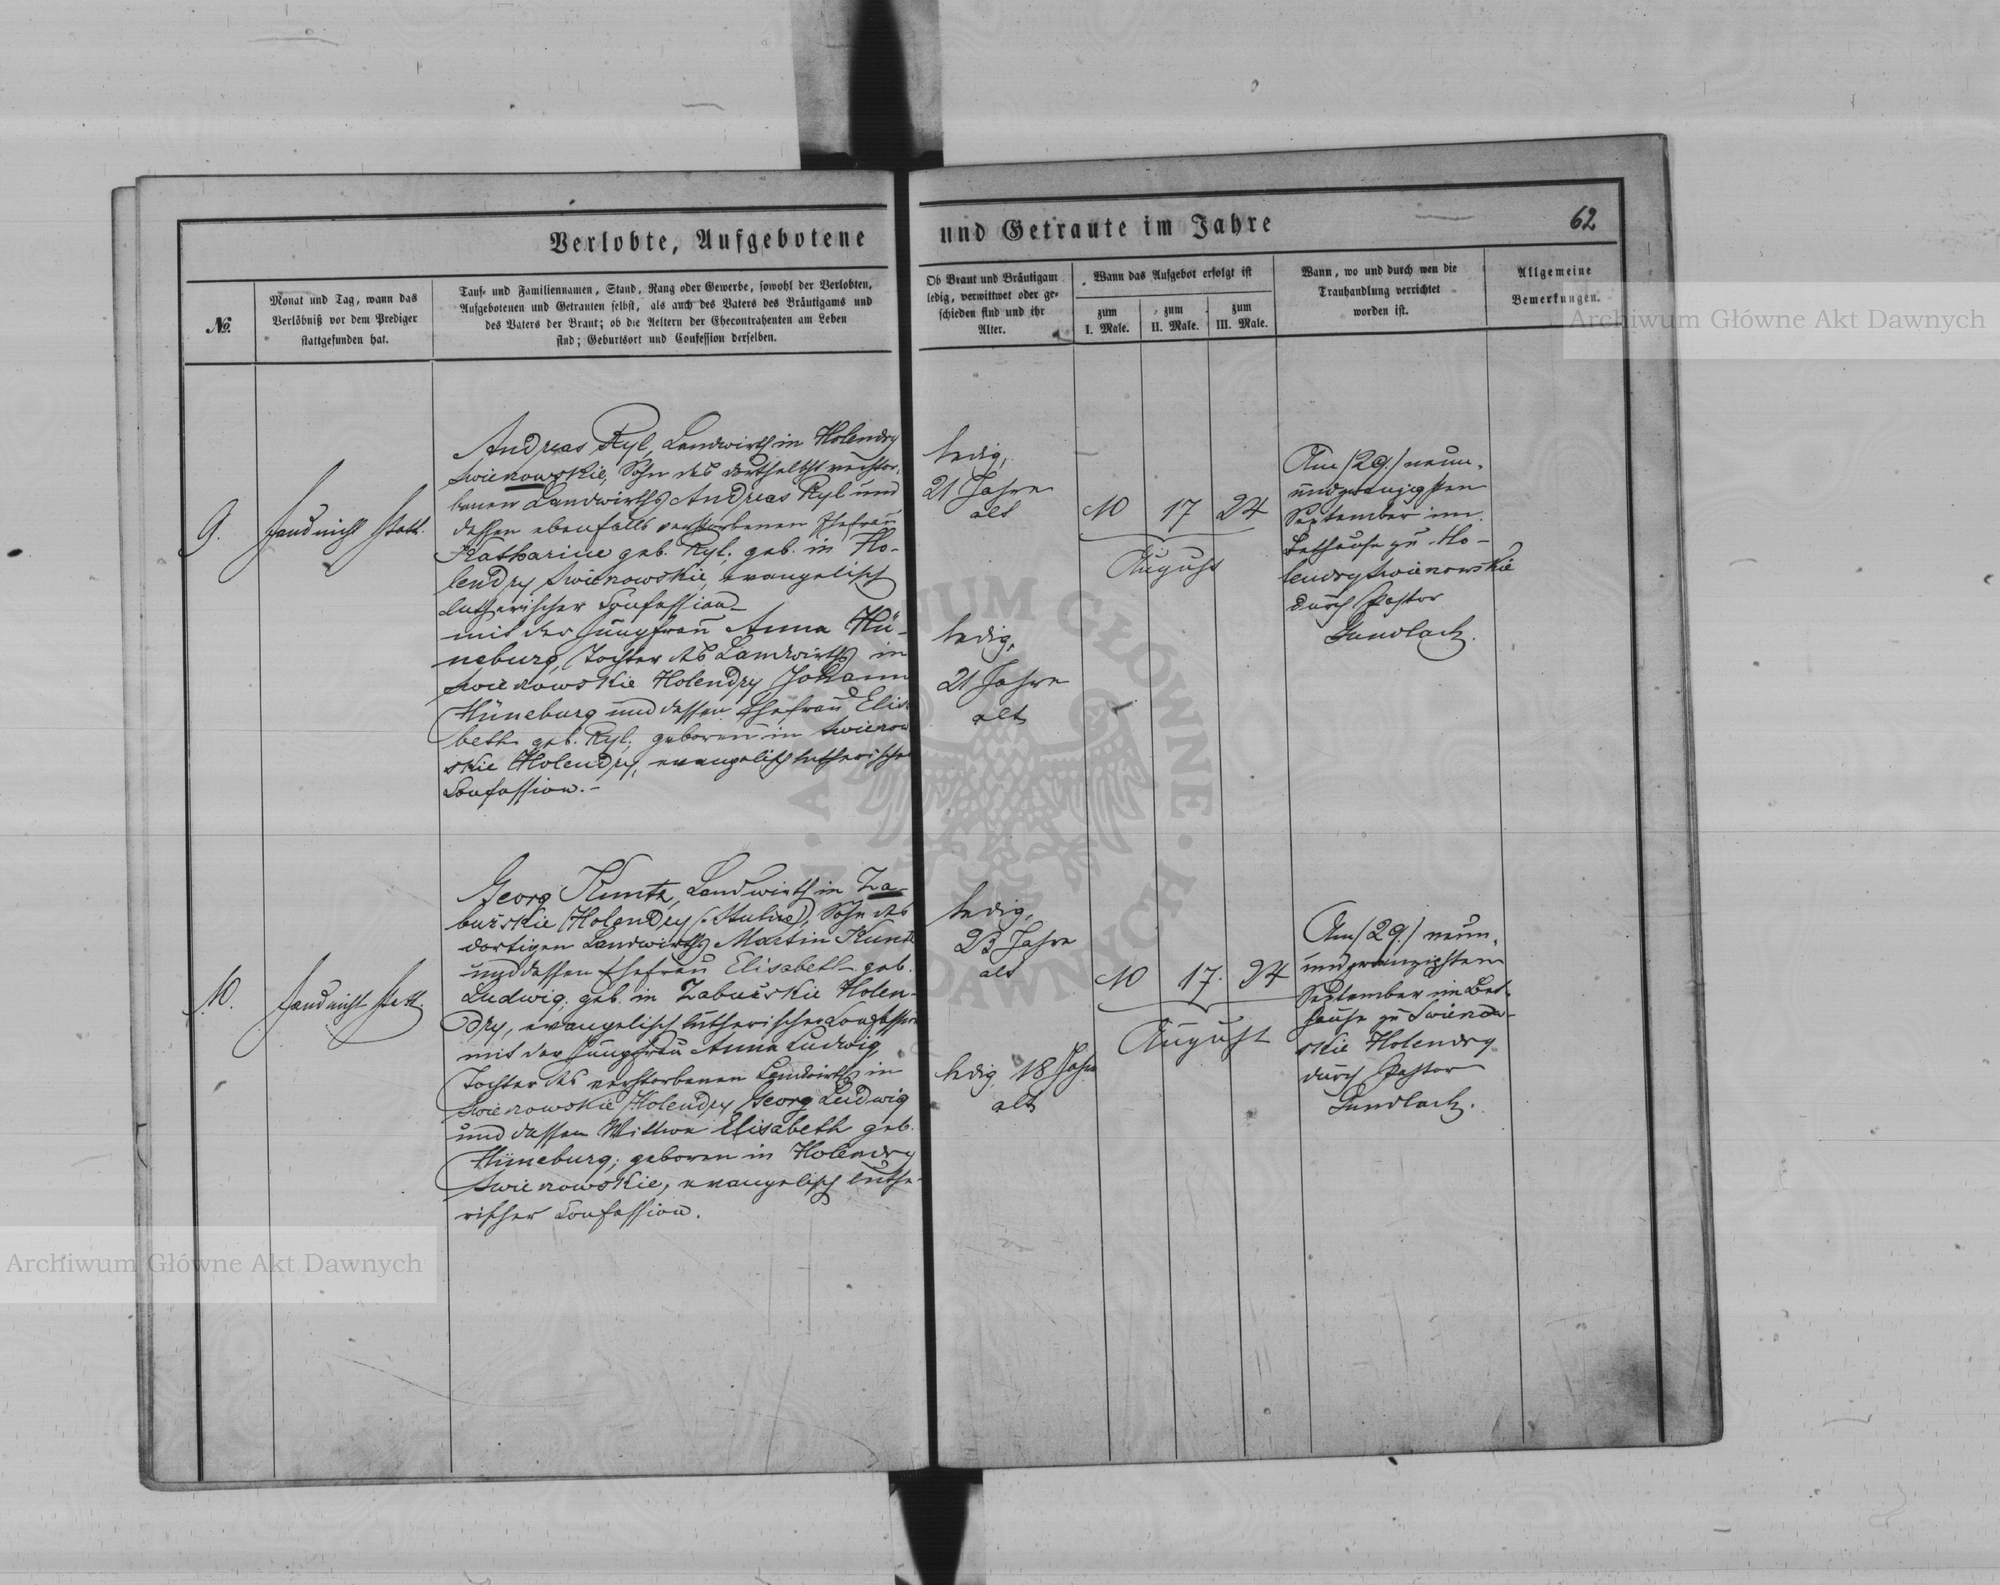 Verlobte, Aufgebotene
und Getraute im Jahre
62
№.
Monat und Tag, wann das
Verlöbniß vor dem Prediger
stattgefunden hat.
Tauf- und Familiennamen, Stand, Rang oder Gewerbe, sowohl der Verlobten,
Aufgebotenen und Getrauten selbst, als auch des Vaters des Bräutigams und
des Vaters der Braut; ob die Aeltern der Ehecontrahenten am Leben
sind; Geburtsort und Confession derselben.
Ob Braut und Bräutigam
ledig, verwittwet oder ge-
schieden sind und ihr
Alter.
Wann das Aufgebot erfolgt ist
zum
I. Male.
zum
II. Male.
zum
III. Male.
Wann, wo und durch wen die
Trauhandlung verrichtet
worden ist.
Allgemeine
Bemerkungen.
9.
fand nicht statt.
Andreas Ryl, Landwirth in Holendry
Swierowskie, Sohn des dorthselbst verstor-
benen Landwirths Andreas Ryl und
dessen ebenfalls verstorbenen Ehefrau
Katharine geb. Ryl; geb. in Ho-
lendry Swierowskie, evangelisch
lutherischer Confession
mit der Jungfrau Anna Hü-
neburg, Tochter des Landwirths in
Swierowskie Holendry Johann
Hüneburg und dessen Ehefrau Elisa
beth geb. Ryl; geboren in Swierow
skie Holendry, evangelisch lutherischer
Confession.-
ledig,
21 Jahre
alt
ledig,
21 Jahre
alt
10 17 24
August
Am (29.) neun-
undzwanzigsten
September im
Bethause zu Ho-
lendry Swierowskie
durch Pastor
Gundlach.
10.
fand nicht statt.
Georg Kuntz, Landwirth in Za-
burskie Holendry (Mulice), Sohn des
dortigen Landwirths Martin Kuntz
und dessen Ehefrau Elisabeth geb.
Ludwig; geb. in Zaburskie Holen-
dry, evangelisch lutherischer Confession
mit der Jungfrau Anna Ludwig,
Tochter des verstorbenen Landwirths in
Swierowskie Holendry Georg Ludwig
und dessen Wittwe Elisabeth geb.
Hüneburg; geboren in Holendry
Swierowskie, evangelisch luthe-
rischer Confession.
ledig,
23 Jahre
alt
ledig 18 Jahre
alt
10 17. 24
August
Am (29.) neun-
undzwanzigsten
September im Bet-
hause zu Swierow-
skie Holendry
durch Pastor
Gundlach.
Archiwum Główne Akt Dawnych
Archiwum Główne Akt Dawnych
ARCHIWUM GŁÓWNE AKT DAWNYCH